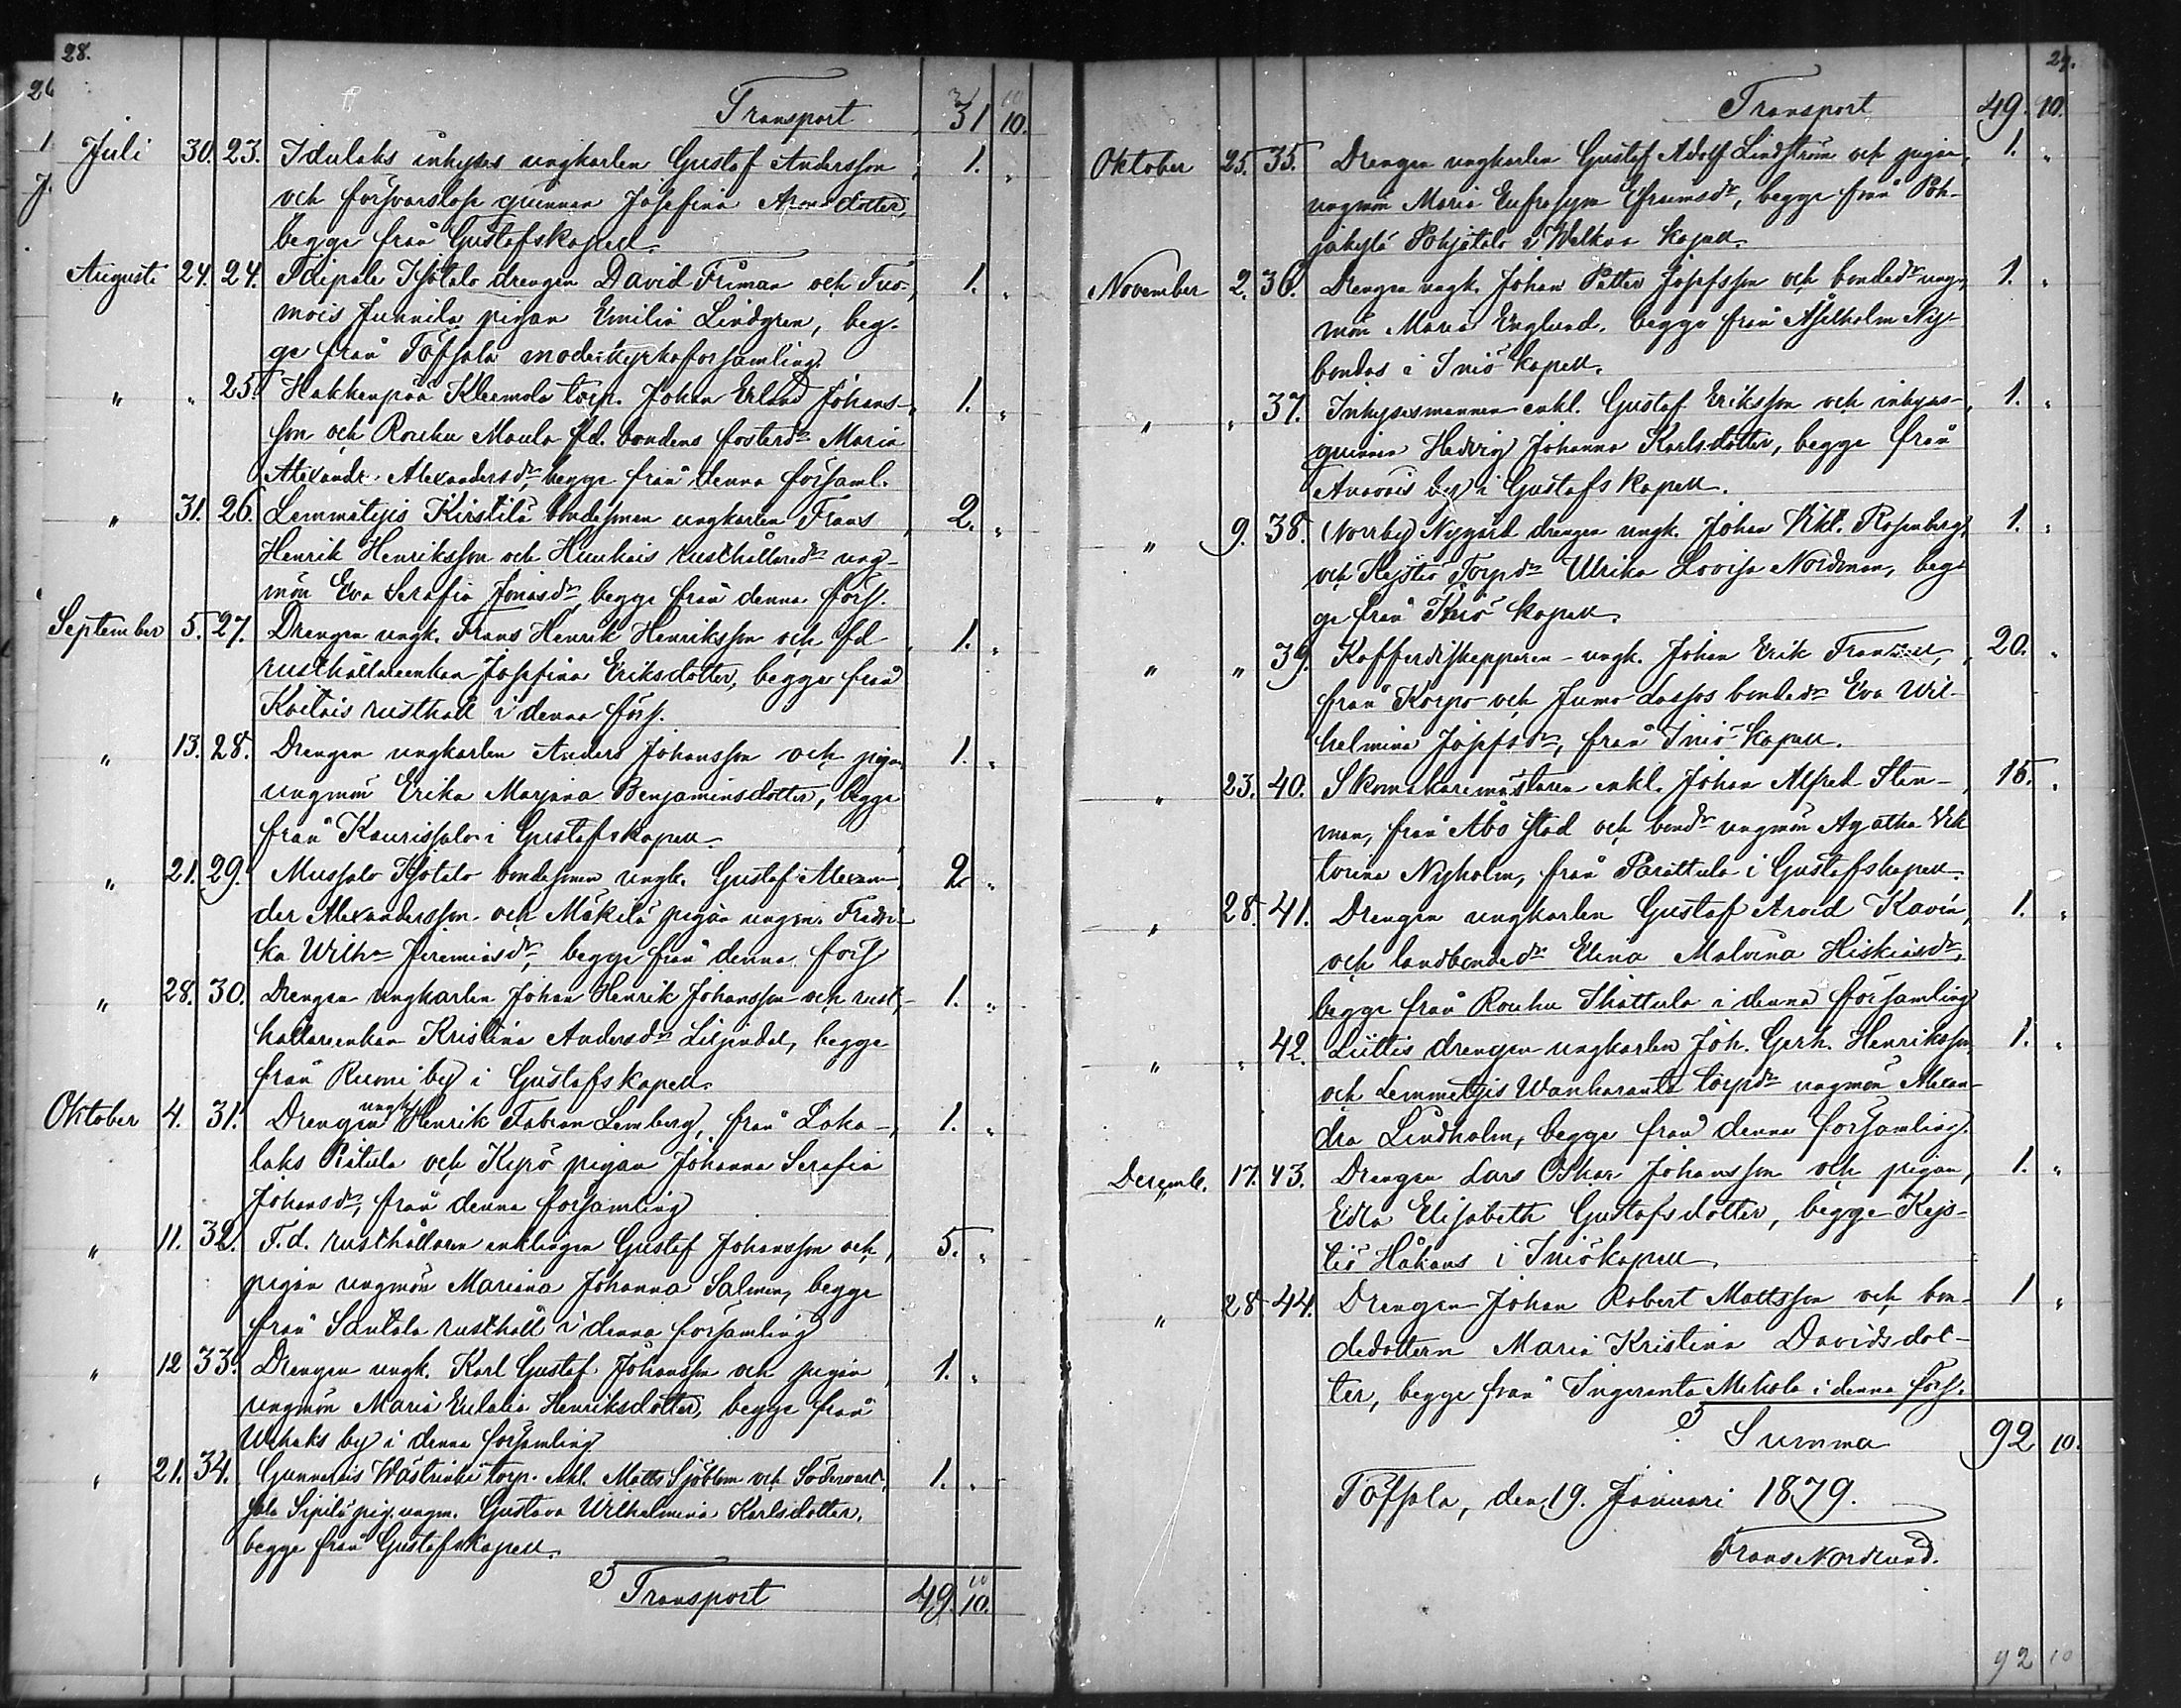 28.
Transport 31 10.
Juli 30. 23. Idulaks inhyses ungkarlen Gustaf Andersson 1. "
och försvarslösa quinnan Josefina Aronsdotter,
begge från Gustafs kapell.
Augusti 24. 24. Taipale Isotalo drengen David Friman och Tuo- 1. "
mois Junnila pigan Emilia Lindgren, beg-
ge från Töfsala moderkyrkoförsamling.
" " 25. Hakkenpää Kleemola torp. Johan Erland Johans- 1. "
son och Rouhu Maula fd. bondens fosterdr Maria
Alexandr. Alexandersdr, begge från denna församl.
" 31. 26. Lemmetyis Kirstilä bondesonen ungkarlen Frans 2. "
Henrik Henriksson och Hunkais rusthållaredr ung-
mön Eva Serafia Jonasdr, begge från denna förs.
September 5. 27. Drengen ungk. Frans Henrik Henriksson och fd 1. "
rusthållareenkan Josefina Eriksdotter, begge från
Kaitais rusthåll i denna förs.
" 13. 28. Drengen ungkarlen Anders Johansson och pigan 1. "
ungmön Erika Marjana Benjaminsdotter, begge
från Kaurissalo i Gustafs kapell.
" 21. 29. Mussalo Isotalo bondesonen ungk. Gustaf Alexan- 2. "
der Alexandersson och Mäkilä pigan ungm. Fredri-
ka Wilha Jeremiasdr, begge från denna förs
" 28. 30. Drengen ungkarlen Johan Henrik Johansson och rust- 1. "
hållareenkan Kristina Andersdr Liljendal, begge
från Rumi by i Gustafs kapell.
Oktober 4. 31. Drengen ungk Henrik Fabian Lemberg, från Loka- 1. "
laks Pistula och Kyrö pigan Johanna Serafia
Johansdr, från denna församling
" 11. 32. F.d. rusthållaren enklingen Gustaf Johansson och 5. "
pigan ungmön Mariana Johanna Salmen, begge
från Santala rusthåll i denna församling
" 12 33. Drengen ungk. Karl Gustaf Johansson och pigan 1. "
ungmön Maria Eulalia Henriksdotter, begge från
Wehaks by i denna församling
" 21. 34. Gunnarais Wästrinki torp. enkl. Matts Sjöblom och Södervart- 1. "
sala Sipilä pig. ungm. Gustava Wilhelmina Karlsdotter,
begge från Gustafs kapell.
Transport 49. 10.
29.
Transport 49. 10.
Oktober 25. 35. Drengen ungkarlen Gustaf Adolf Lindström och pigan, 1. "
ungmön Maria Eufrosyne Efraimsdr, begge från Poh-
jakylä Pohjatalo i Welkua kapell.
November 2. 36. Drengen ungk. Johan Petter Josefsson och bondedr ung- 1. "
mön Maria Englund, begge från Åselholm Ny-
bondas i Iniö kapell.
" " 37. Inhysesmannen enkl. Gustaf Eriksson och inhyses- 1. "
quinnan Hedvig Johanna Karlsdotter, begge från
Anavais by i Gustafs kapell.
" 9. 38. Norrby Nygård drengen ungk. Johan Vikt. Rosenberg, 1. "
och Kejstiö Torpdr Ulrika Lovisa Nordman, beg-
ge från Iniö kapell.
" " 39. Kofferdiskepparen ungk. Johan Erik Frantzell, 20. "
från Korpo och Jumo Lassas bondedr Eva Wil-
helmina Josefsdr, från Iniö kapell.
" 23. 40. Skomakaremästaren enkl. Johan Alfred Sten- 15. "
man, från Åbo stad och bondr ungmön Agatha Vik
torina Nyholm, från Parattula i Gustafs kapell.
" 28. 41. Drengen ungkarlen Gustaf Arvid Kavén, 1. "
och landbondedr Elina Malvina Hiskiasdr,
begge från Rouhu Ihattula i denna församling
" " 42. Liittis drengen ungkarlen Joh. Gerh. Henriksson 1. "
och Lemmetyis Wanharanta torpdr ungmön Alexan-
dra Lindholm, begge från denna församling.
Decemb. 17. 43. Drengen Lars Oskar Johansson och pigan, 1. "
Edla Elisabeth Gustafsdotter, begge Kejs-
tiö Håkans i Iniö kapell
" 28. 44. Drengen Johan Robert Mattsson och bon- 1 "
dedottern Maria Kristina Davidsdot-
ter, begge från Ingeranta Mekola i denna förs.
Summa 92 10.
Töfsala, den 19. Januari 1879.
Frans Nordlund.
92 10